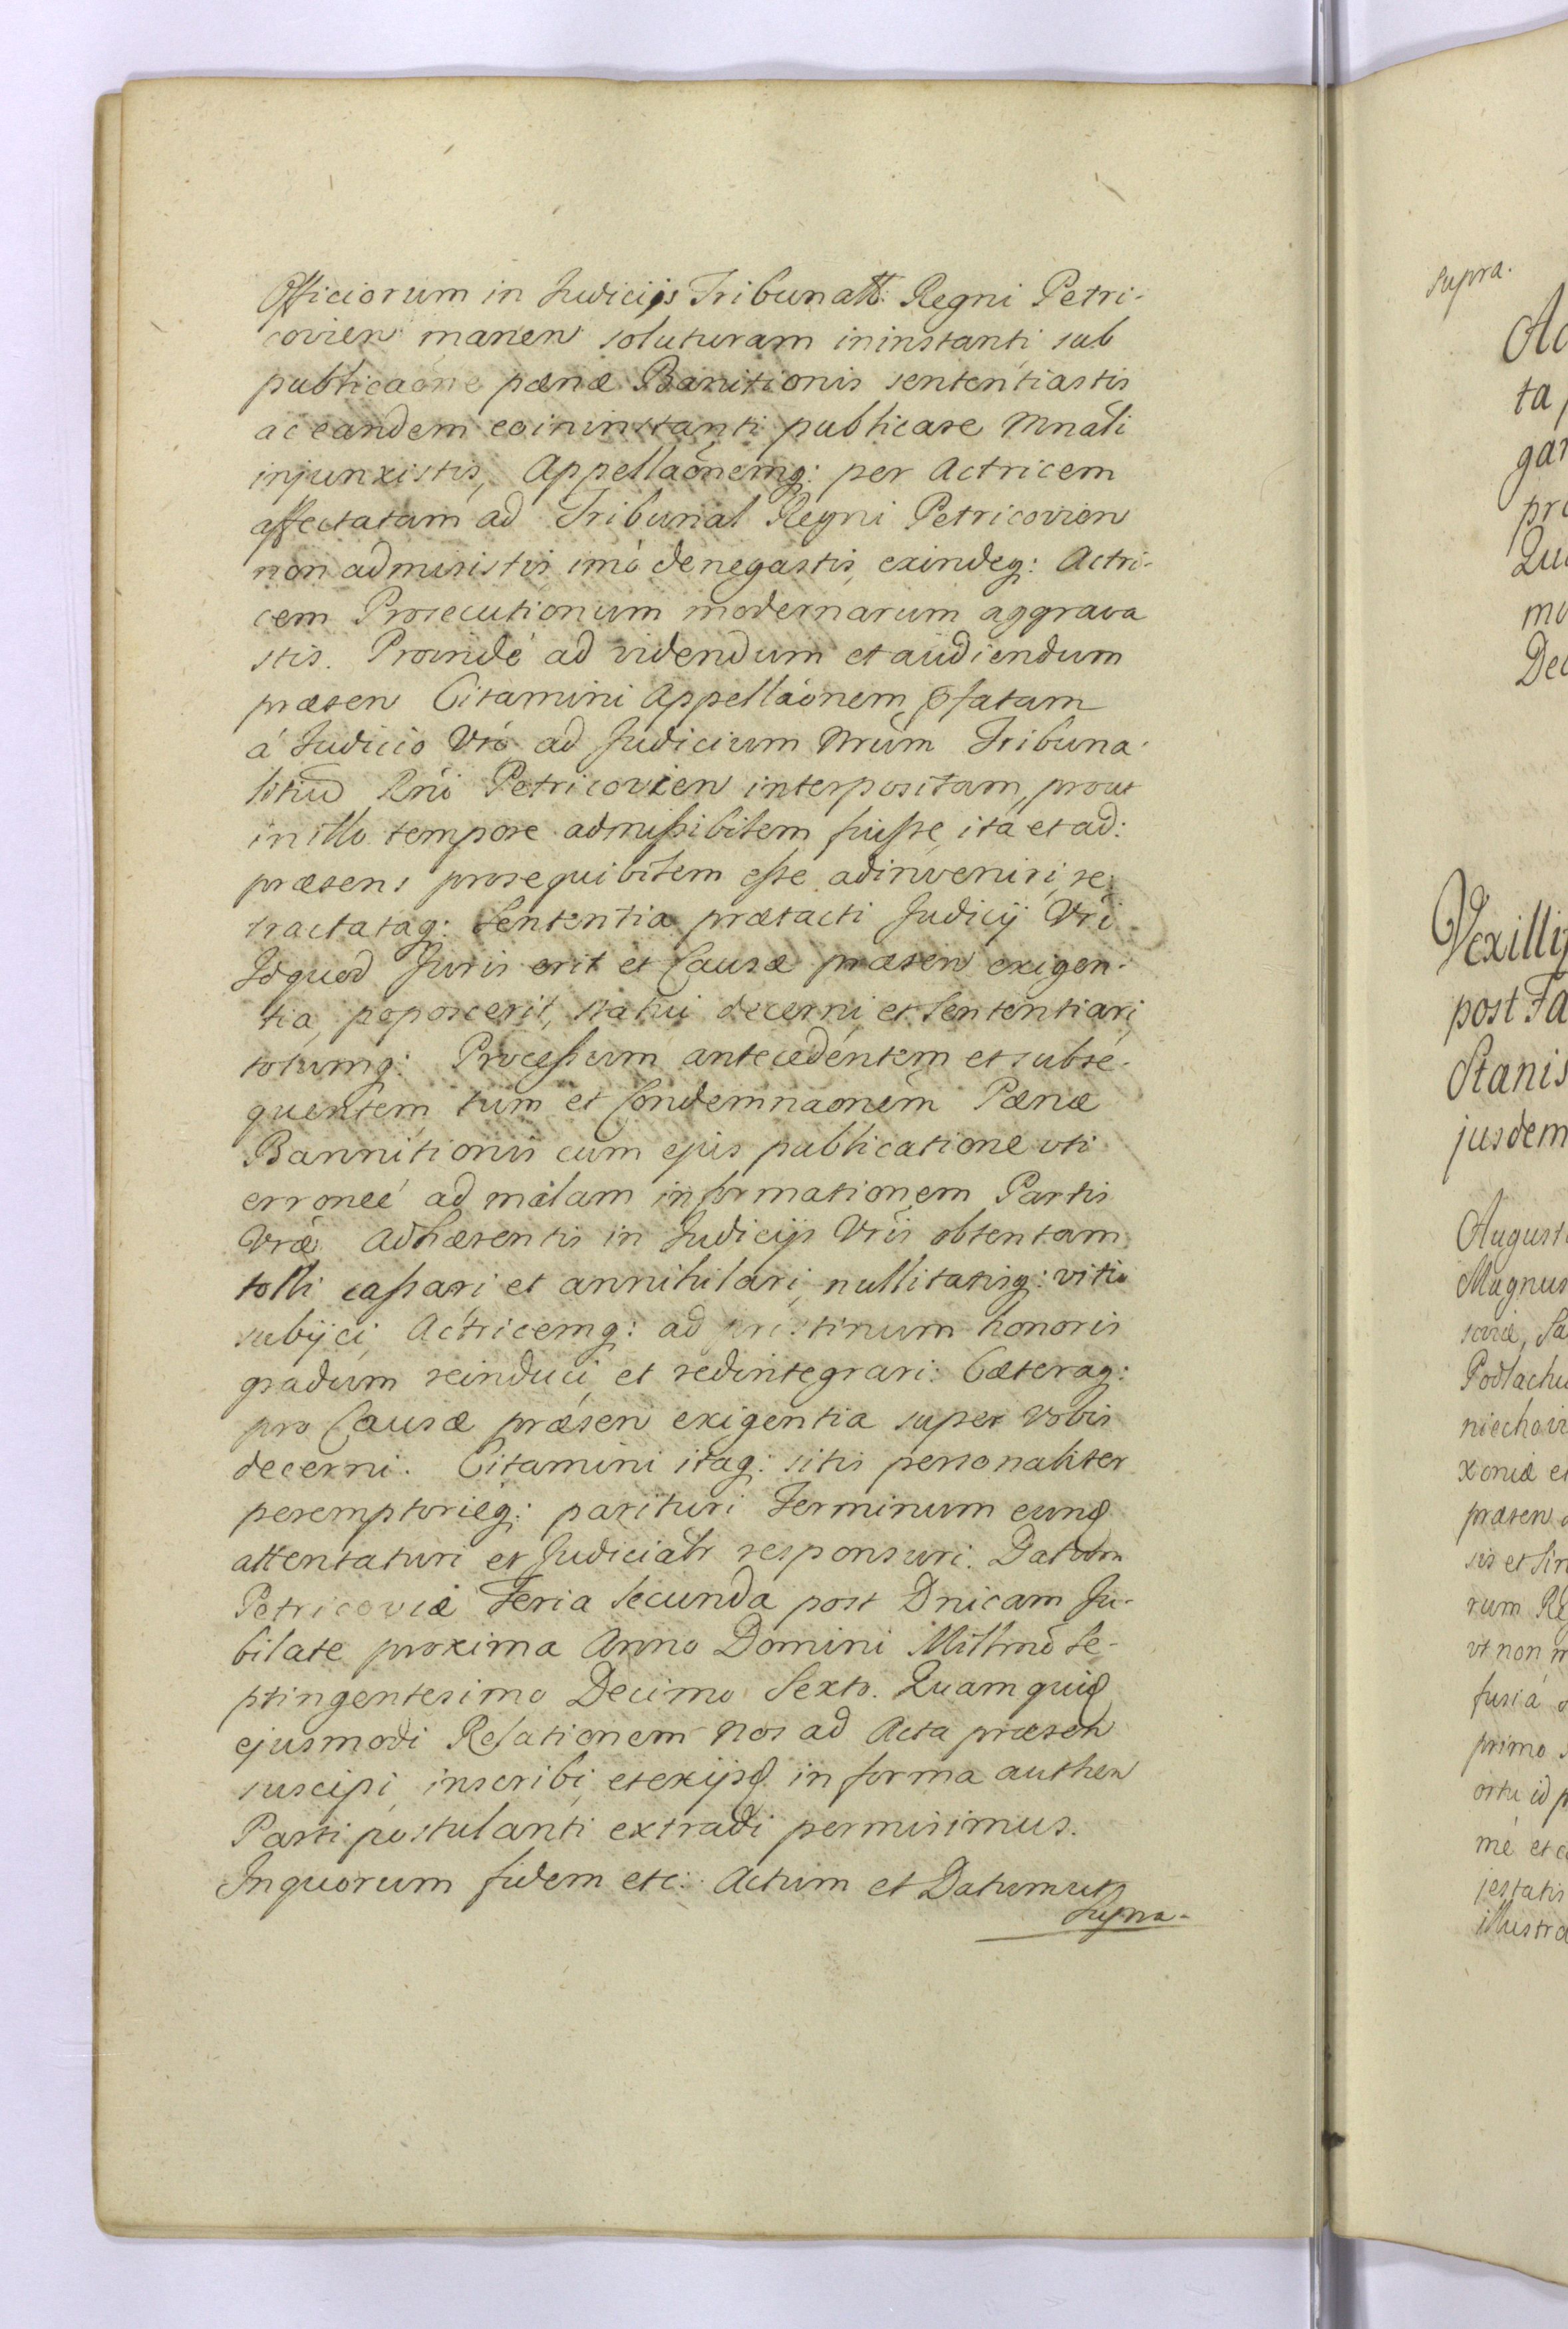 Officiorum in Judicijs Tribunalt: Regni Petri-
covien manen soluturam ininstanti sub
publicaone pænæ Banitionis sententiastis
ac eandem eoininstanti publicare Mnali
injunxistis, Appellaonemq: per Actricem
affectatam ad Tribunal Regni Petricovien
non admisistis imo denegastis, exindeq: Actri-
cem Prosecutionum modernarum aggrava
stis. Proindé ad videndum et audiendum
præsen Citamini Appellaonem pfatam
á Judicio Vro ad Judicium Nrum Tribuna-
litiu Rni Petricovien interpositam, prout
in illo tempore admissibilem fuisse, ita et ad:
præsens prosequibilem esse adinveniri, re:
tractataq: Sententia prætacti Judicij Vri
Idquod Juris erit et Causæ præsen exigen-
tia poposcerit, statui decerni et Sententiari,
totumq: Processum antecedentem et subse-
quentem tum et Condemnaonem Pænæ
Bannitionis cum ejus publicatione uti
erroneé ad malam informationem Partis
Vræ Adhærentis in Judicijs Vris obtentam
tolli cassari et annihilari, nullitatisq: vitio
subijci, Actricemq: ad pristinum honoris
gradum reinduci, et redintegrari: Cæteraq:
pro Causæ præsen exigentia super vobis
decerni. Citamini itaq: sitis personaliter
peremptorieq: parituri Terminum eunq
attentaturi et Judicialr responsuri. Datum
Petricoviæ Feria Secunda post Dnicam Ju-
bilate proxima Anno Domini Millmo Se-
ptingentesimo Decimo Sexto. Quam quiq
ejusmodi Relationem Nos ad Acta præsen
suscipi, inscribi, et exijsq in forma authen
Parti postulanti extradi permisimus.
Inquorum fidem etc: Actum et Datum ut
Supra.
supra.
Ac
ta
gar
pr
Qu
mo
Dec
Vexilli
post Fa
Stanis
jusdem
August
Magnus
soviæ, Sa
Podlachi
niechovi
xoniæ et
præsen
sis et Sin
rum Re
vt non
fusiá
primo
ortu id
mé et
jestatis
illustra